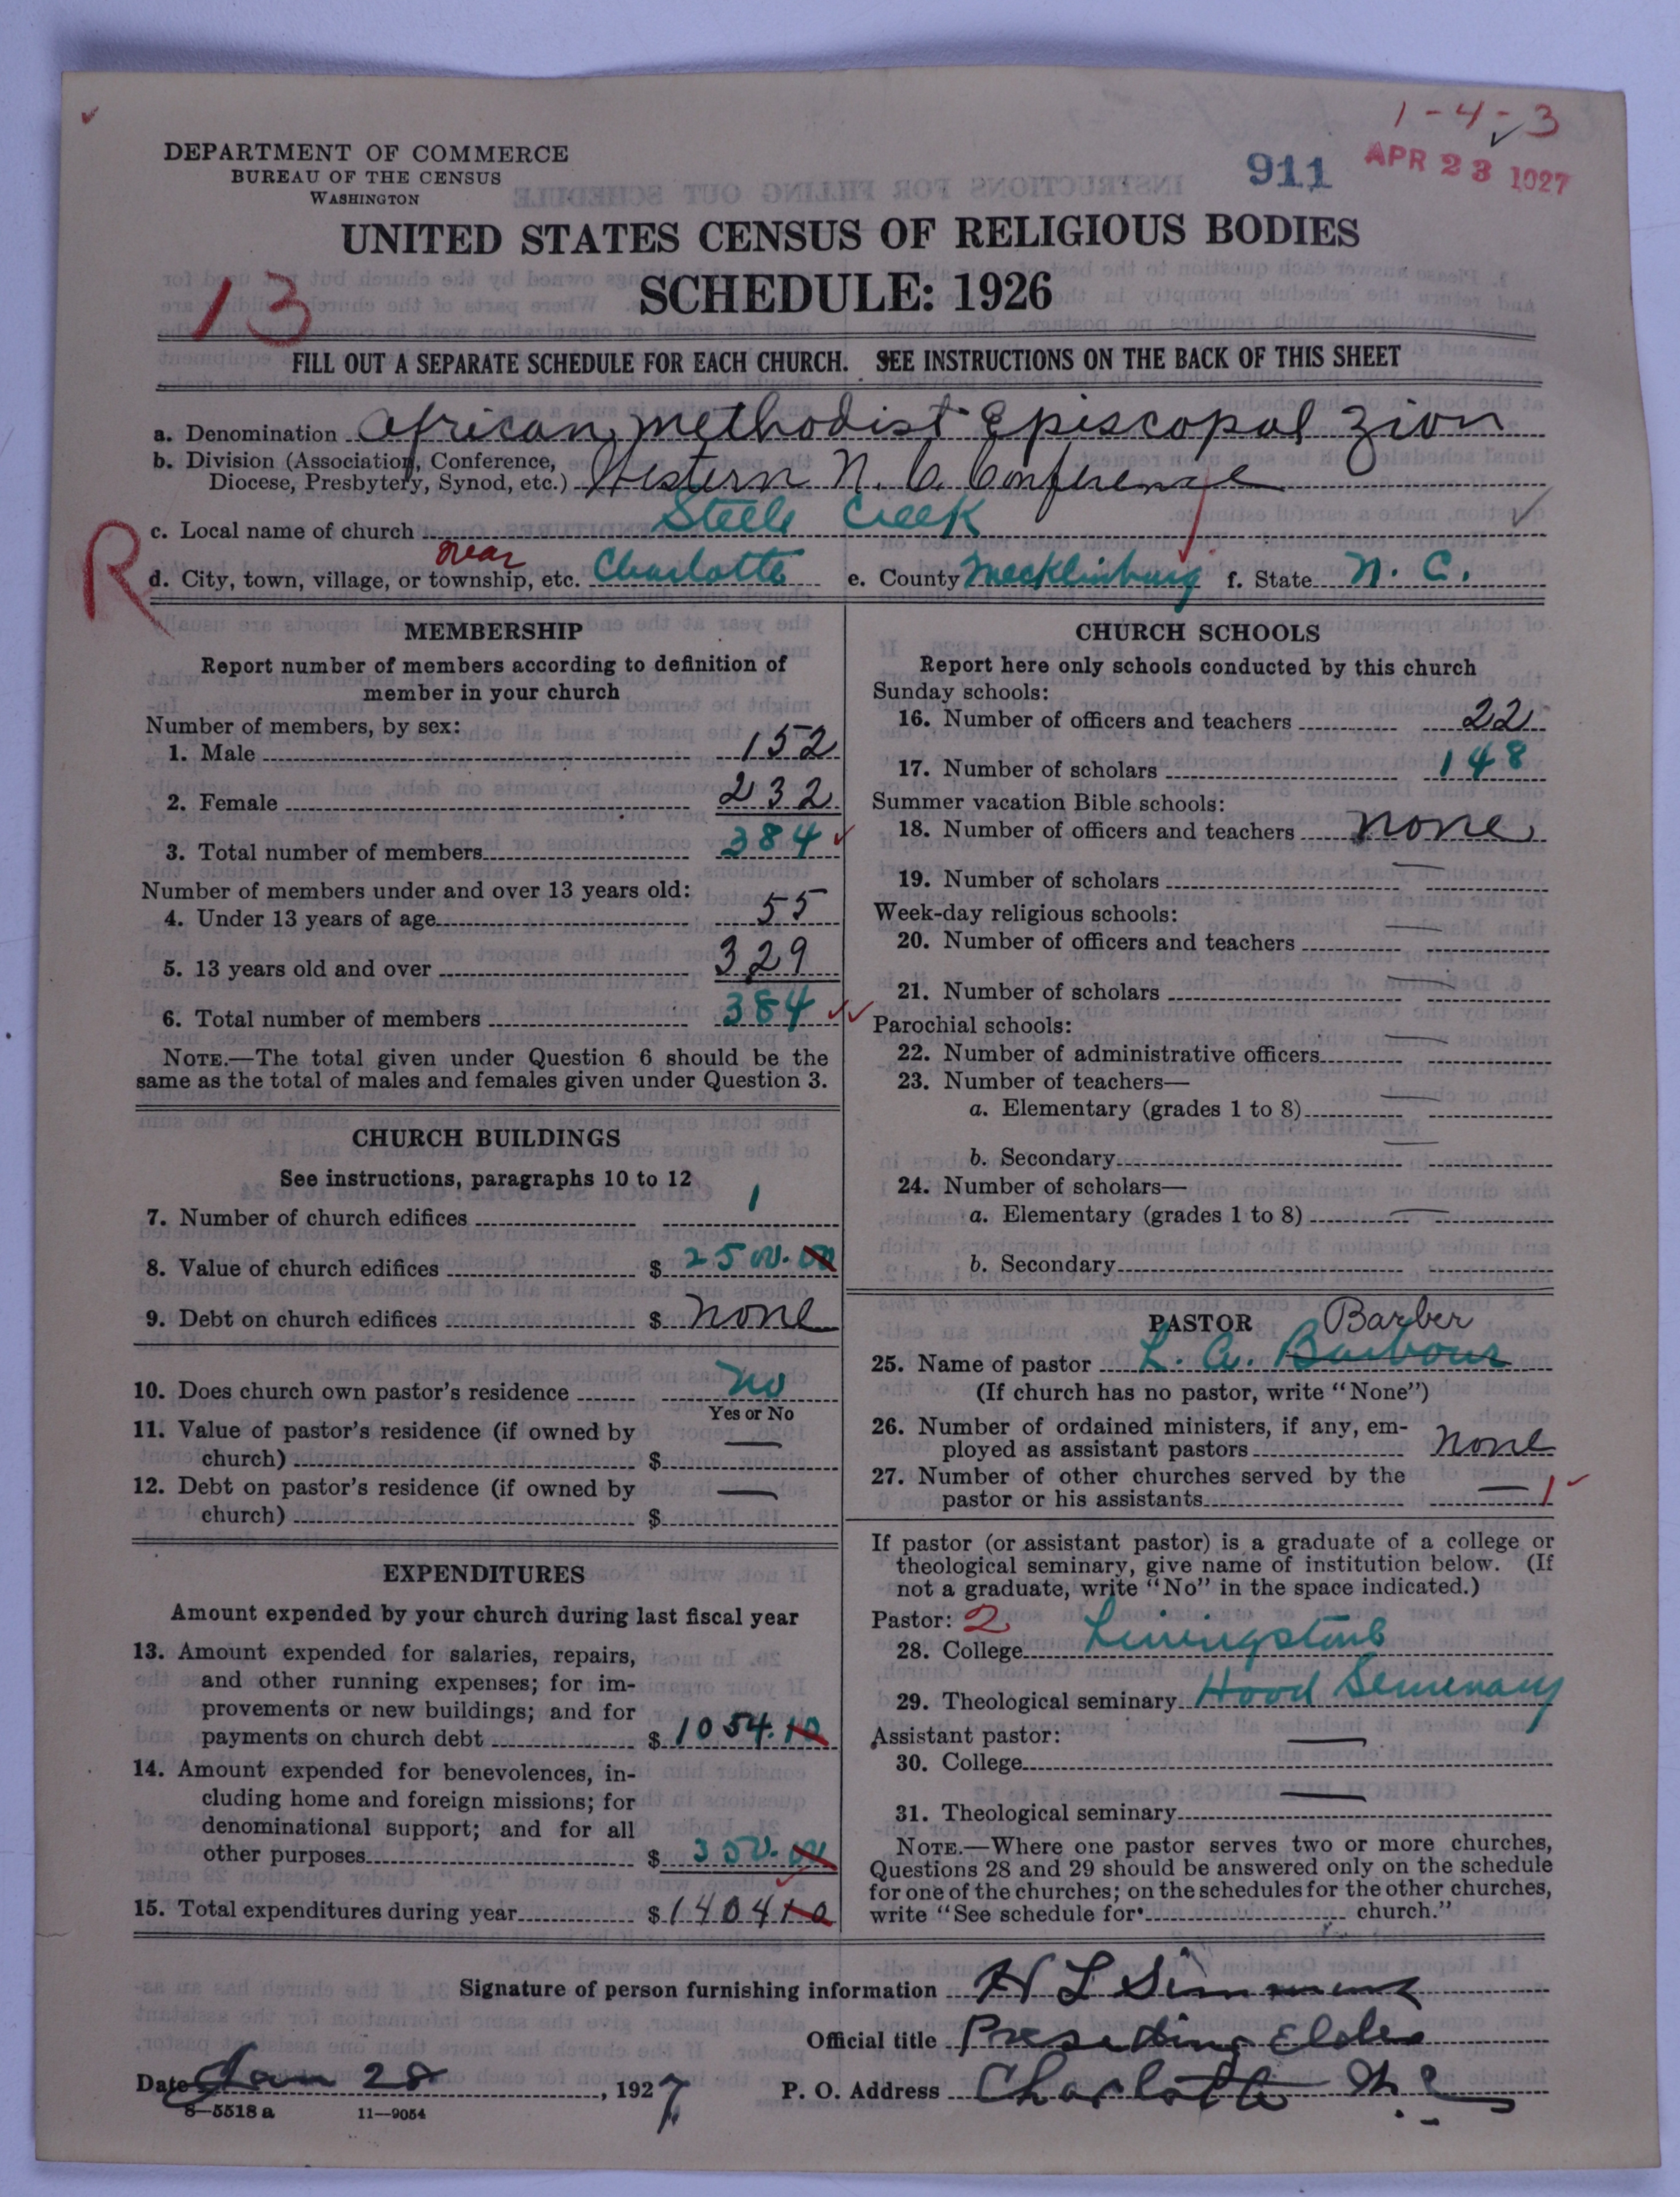 1-4-3
DEPARTMENT OF COMMERCE
BUREAU OF THE CENSUS
WASHINGTON
911
APR 23 1927
UNITED STATES CENSUS OF RELIGIOUS BODIES
SCHEDULE: 1926
13
FILL OUT A SEPARATE SCHEDULE FOR EACH CHURCH. SEE INSTRUCTIONS ON THE BACK OF THIS SHEET
a. Denomination African Methodist Episcopal Zion
b. Division (Association, Conference,
Diocese, Presbytery, Synod, etc.) Western N. C. Conference
c. Local name of church Steele Creek
R
near
d. City, town, village, or township, etc. Charlotte e. County Mecklinburg f. State N. C.
MEMBERSHIP
Report number of members according to definition of
member in your church
Number of members, by sex:
1. Male 152
2. Female 232
3. Total number of members 384
Number of members under and over 13 years old:
4. Under 13 years of age 55
5. 13 years old and over 329
6. Total number of members 384
NOTE.—The total given under Question 6 should be the
same as the total of males and females given under Question 3.
CHURCH BUILDINGS
See instructions, paragraphs 10 to 12
7. Number of church edifices 1
8. Value of church edifices $ 2500.00
9. Debt on church edifices $ none
10. Does church own pastor's residence No
Yes or No
11. Value of pastor's residence (if owned by
church) $ —
12. Debt on pastor's residence (if owned by
church) $ —
EXPENDITURES
Amount expended by your church during last fiscal year
13. Amount expended for salaries, repairs,
and other running expenses; for im-
provements or new buildings; and for
payments on church debt $ 1054.10
14. Amount expended for benevolences, in-
cluding home and foreign missions; for
denominational support; and for all
other purposes $ 350.00
15. Total expenditures during year $ 140410
CHURCH SCHOOLS
Report here only schools conducted by this church
Sunday schools:
16. Number of officers and teachers 22
17. Number of scholars 148
Summer vacation Bible schools:
18. Number of officers and teachers none
19. Number of scholars —
Week-day religious schools:
20. Number of officers and teachers —
21. Number of scholars —
Parochial schools:
22. Number of administrative officers —
23. Number of teachers—
a. Elementary (grades 1 to 8) —
b. Secondary —
24. Number of scholars—
a. Elementary (grades 1 to 8) —
b. Secondary
PASTOR
Barber
25. Name of pastor L. A. Barbour
(If church has no pastor, write "None")
26. Number of ordained ministers, if any, em-
ployed as assistant pastors none
27. Number of other churches served by the
pastor or his assistants — 1
If pastor (or assistant pastor) is a graduate of a college or
theological seminary, give name of institution below. (If
not a graduate, write "No" in the space indicated.)
Pastor: 2
28. College Livingstone
29. Theological seminary Hood Seminary
Assistant pastor:
30. College —
31. Theological seminary —
NOTE.—Where one pastor serves two or more churches,
Questions 28 and 29 should be answered only on the schedule
for one of the churches; on the schedules for the other churches,
write "See schedule for church."
Signature of person furnishing information H L Simmons
Official title Presiding Elder
Date Jan 28, 1927 P. O. Address Charlotte N. C.
8—5518 a 11—9054